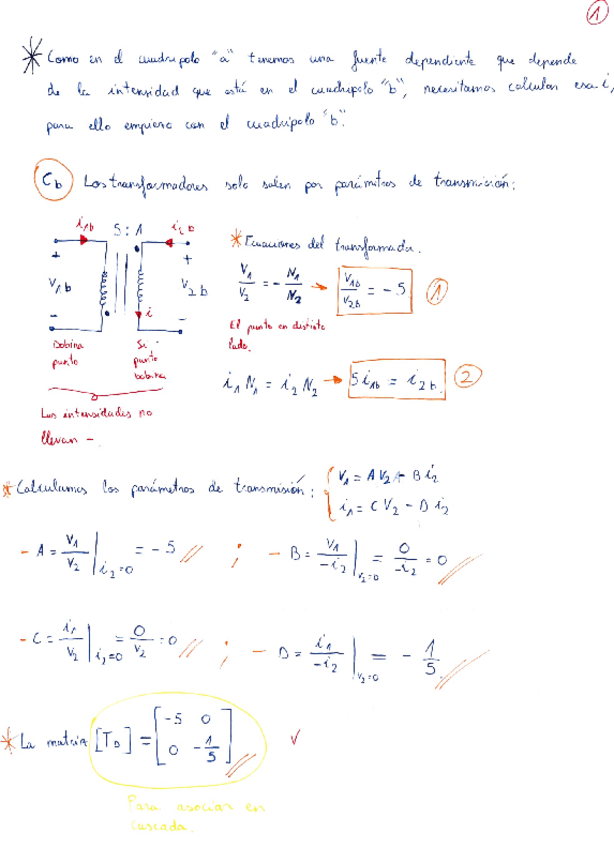 1
* Como en el cuadripolo "a" tenemos una fuente dependiente que depende
de la intensidad que está en el cuadripolo "b", necesitamos calcular esa i,
para ello empiezo con el cuadripolo "b".
Cb Los transformadores solo salen por parámetros de transmisión:
i1b 5:1 i2b
+ +
V1b V2b
i
- -
Bobina punto
Si - punto bobina
Las intensidades no
llevan -.
* Ecuaciones del transformador.
V1/V2 = - N1/N2 → V1b/V2b = -5 1
El punto en distinto
lado.
i1 N1 = i2 N2 → 5 i1b = i2b. 2
* Calculamos los parámetros de transmisión: { V1 = A V2 - B i2
i1 = C V2 - D i2
- A = V1/V2 | i2=0 = -5 // ; - B = V1/-i2 | V2=0 = 0/-i2 = 0 //
- C = i1/V2 | i2=0 = 0/V2 = 0 // ; - D = i1/-i2 | V2=0 = - 1/5 //
* La matriz [Tb] = [ -5 0
0 -1/5 ] // ✓
Para asociar en
cascada.